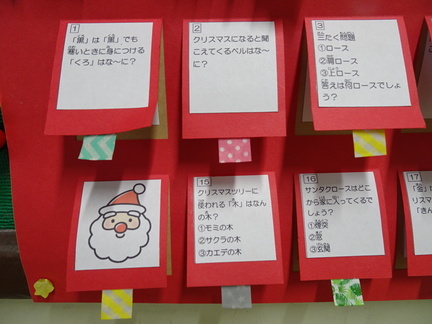 1
「黒」は「黒」でも
寒いときに身につける
「くろ」はな〜に?
2
クリスマスになると聞
こえてくるベルはな〜
に?
3
三たく問題
①ロース
②肩ロース
③上ロース
答えは何ロースでしょ
う?
15
クリスマスツリーに
使われる「木」はなん
の木?
①モミの木
②サクラの木
③カエデの木
16
サンタクロースはどこ
から家に入ってくるで
しょう?
①煙突
②窓
③玄関
17
リスマ
「きん